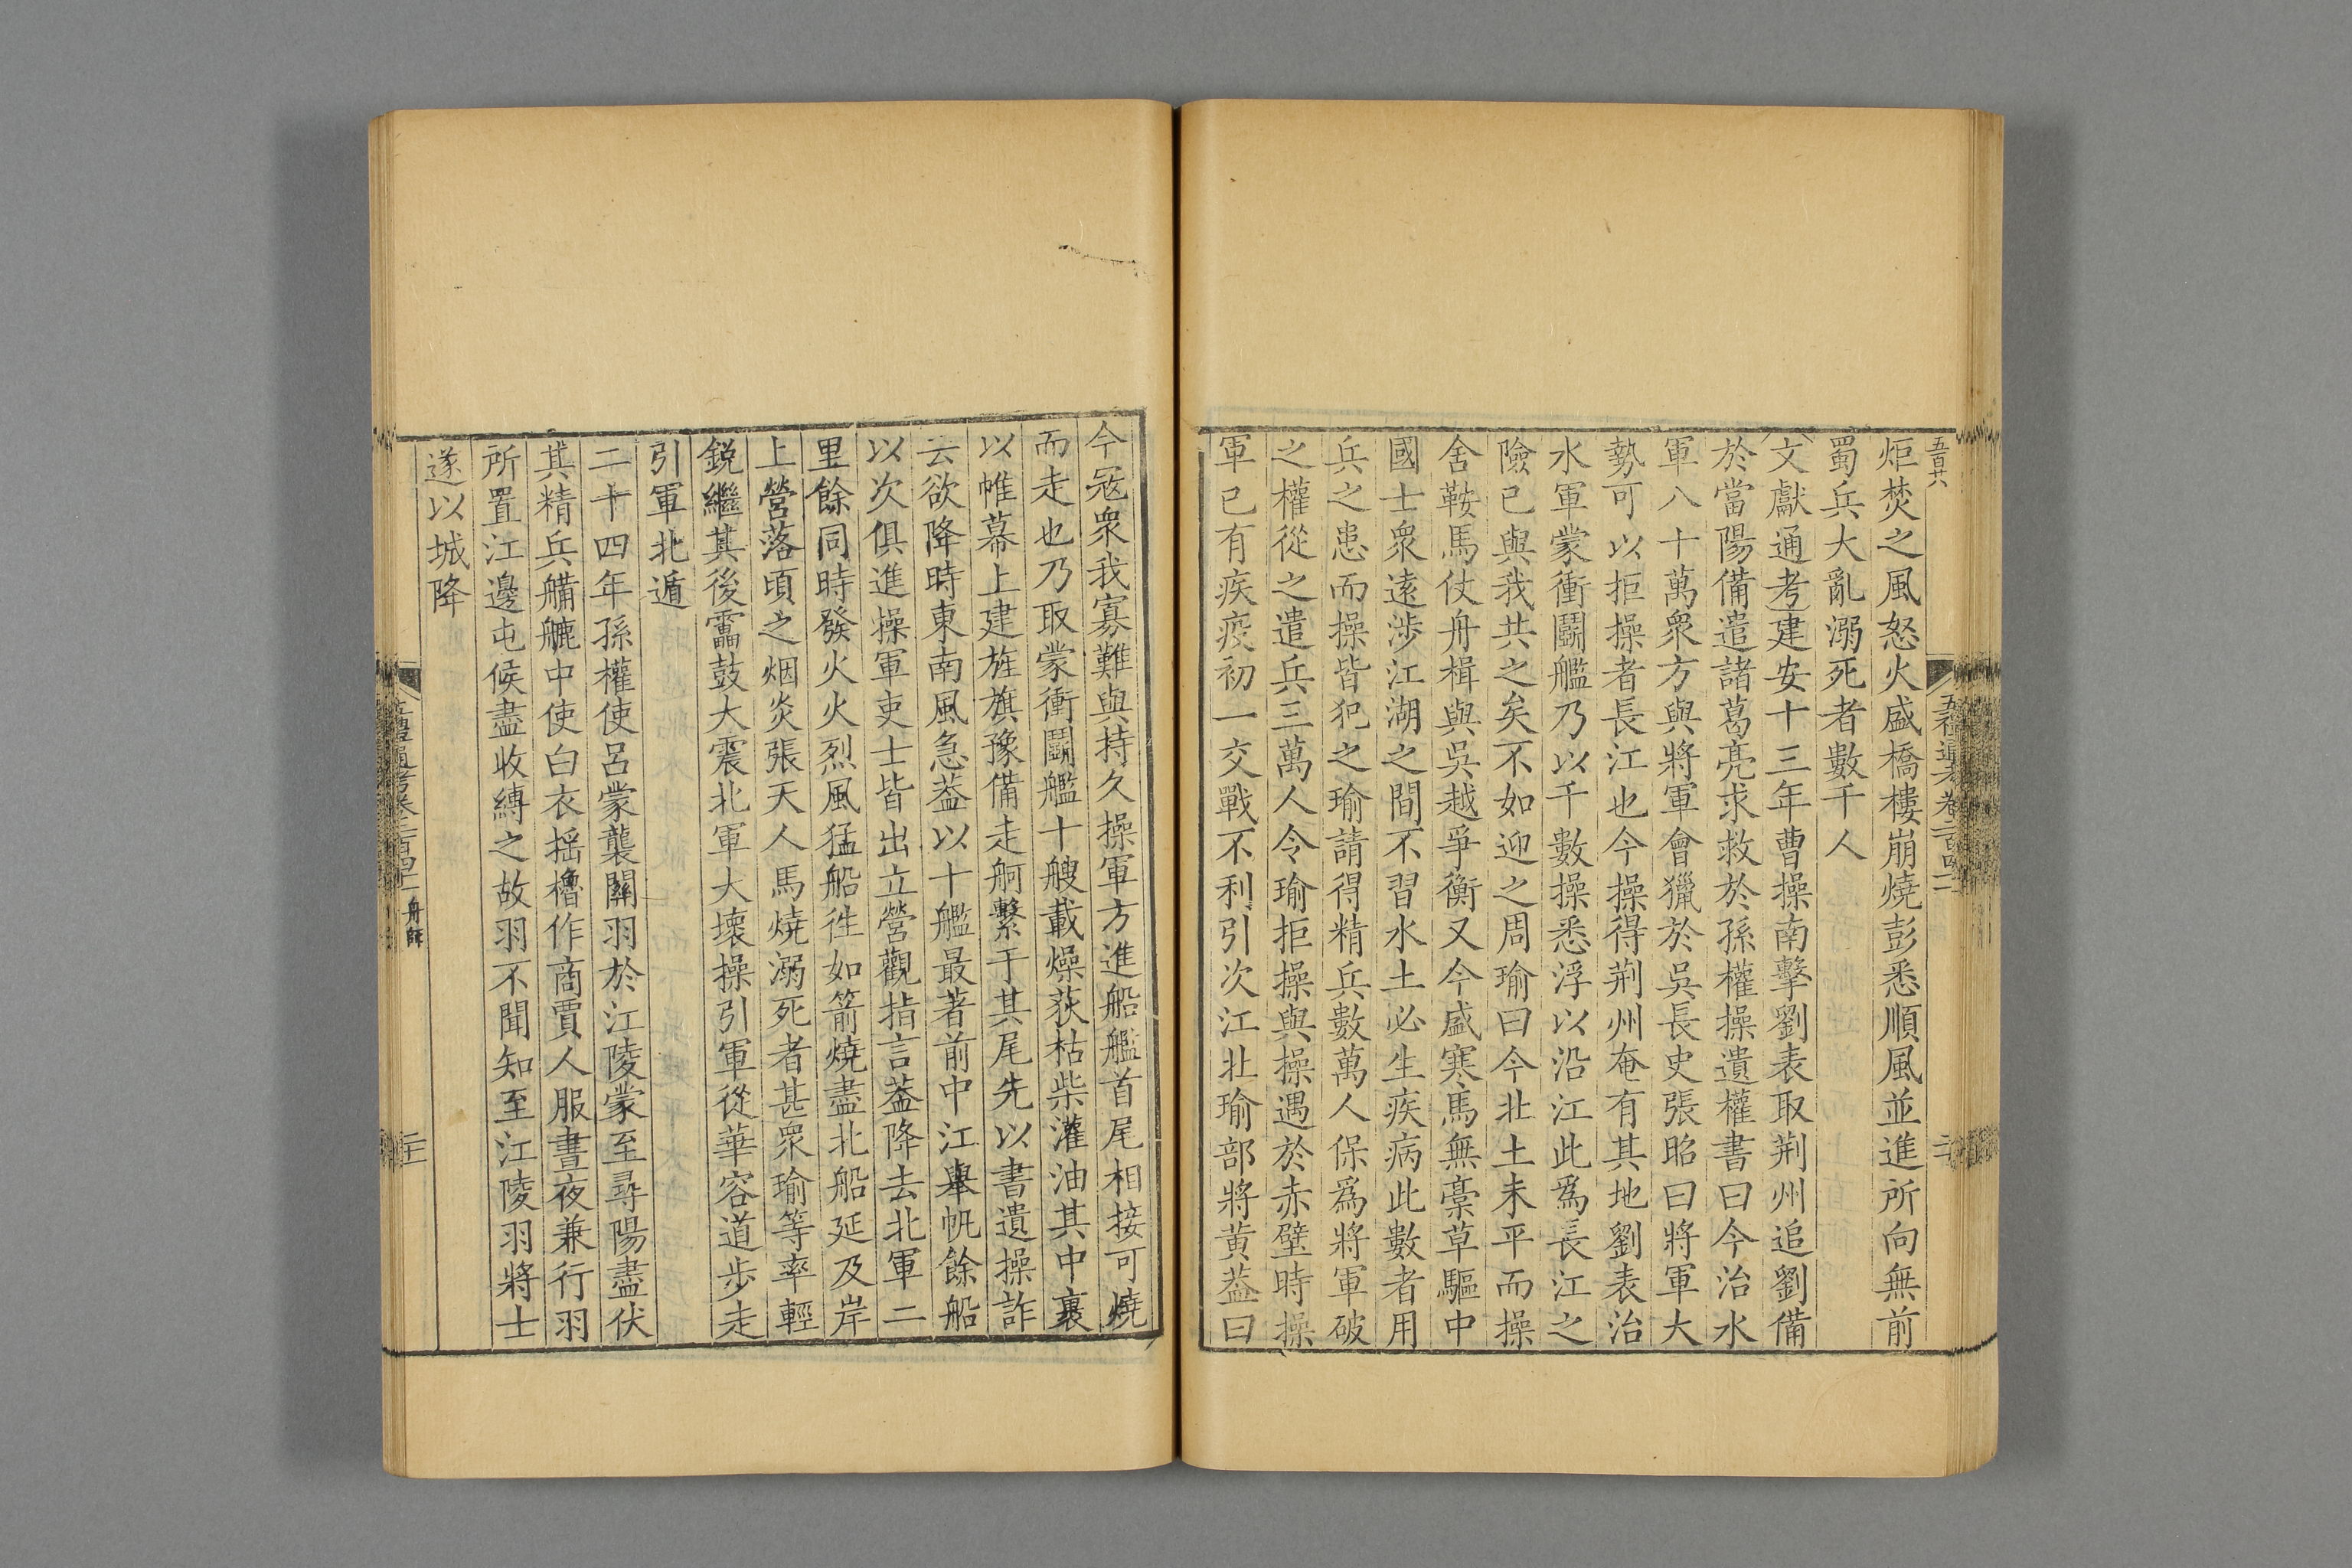 五百廿八
炬焚之風怒火盛橋樓崩燒彭悉順風並進所向無前
蜀兵大亂溺死者數千人
文獻通考建安十三年曹操南擊劉表取荆州追劉備
於當陽備遣諸葛亮求救於孫權操遺權書曰今治水
軍八十萬衆方與將軍會獵於吳長史張昭曰將軍大
勢可以拒操者長江也今操得荆州奄有其地劉表治
水軍蒙衝鬬艦乃以千數操悉浮以沿江此爲長江之
險已與我共之矣不如迎之周瑜曰今北土未平而操
舍鞍馬仗舟楫與吳越爭衡又今盛寒馬無藁草驅中
國士衆遠涉江湖之間不習水土必生疾病此數者用
兵之患而操皆犯之瑜請得精兵數萬人保爲將軍破
之權從之遣兵三萬人令瑜拒操與操遇於赤壁時操
軍已有疾疫初一交戰不利引次江北瑜部將黄葢曰
今寇衆我寡難與持久操軍方進船艦首尾相接可燒
而走也乃取蒙衝鬬艦十艘載燥荻枯柴灌油其中裹
以帷幕上建旌旗豫備走舸繫于其尾先以書遺操詐
云欲降時東南風急葢以十艦最著前中江舉帆餘船
以次俱進操軍吏士皆出立營觀指言葢降去北軍二
里餘同時發火火烈風猛船徃如箭燒盡北船延及岸
上營落頃之烟炎張天人馬燒溺死者甚衆瑜等率輕
鋭繼其後靁鼓大震北軍大壞操引軍從華容道步走
引軍北遁
二十四年孫權使呂蒙襲關羽於江陵蒙至尋陽盡伏
其精兵艨艫中使白衣摇櫓作商賈人服晝夜兼行羽
所置江邊屯候盡收縛之故羽不聞知至江陵羽將士
遂以城降
五禮通考卷二百四十二 舟師
二十一